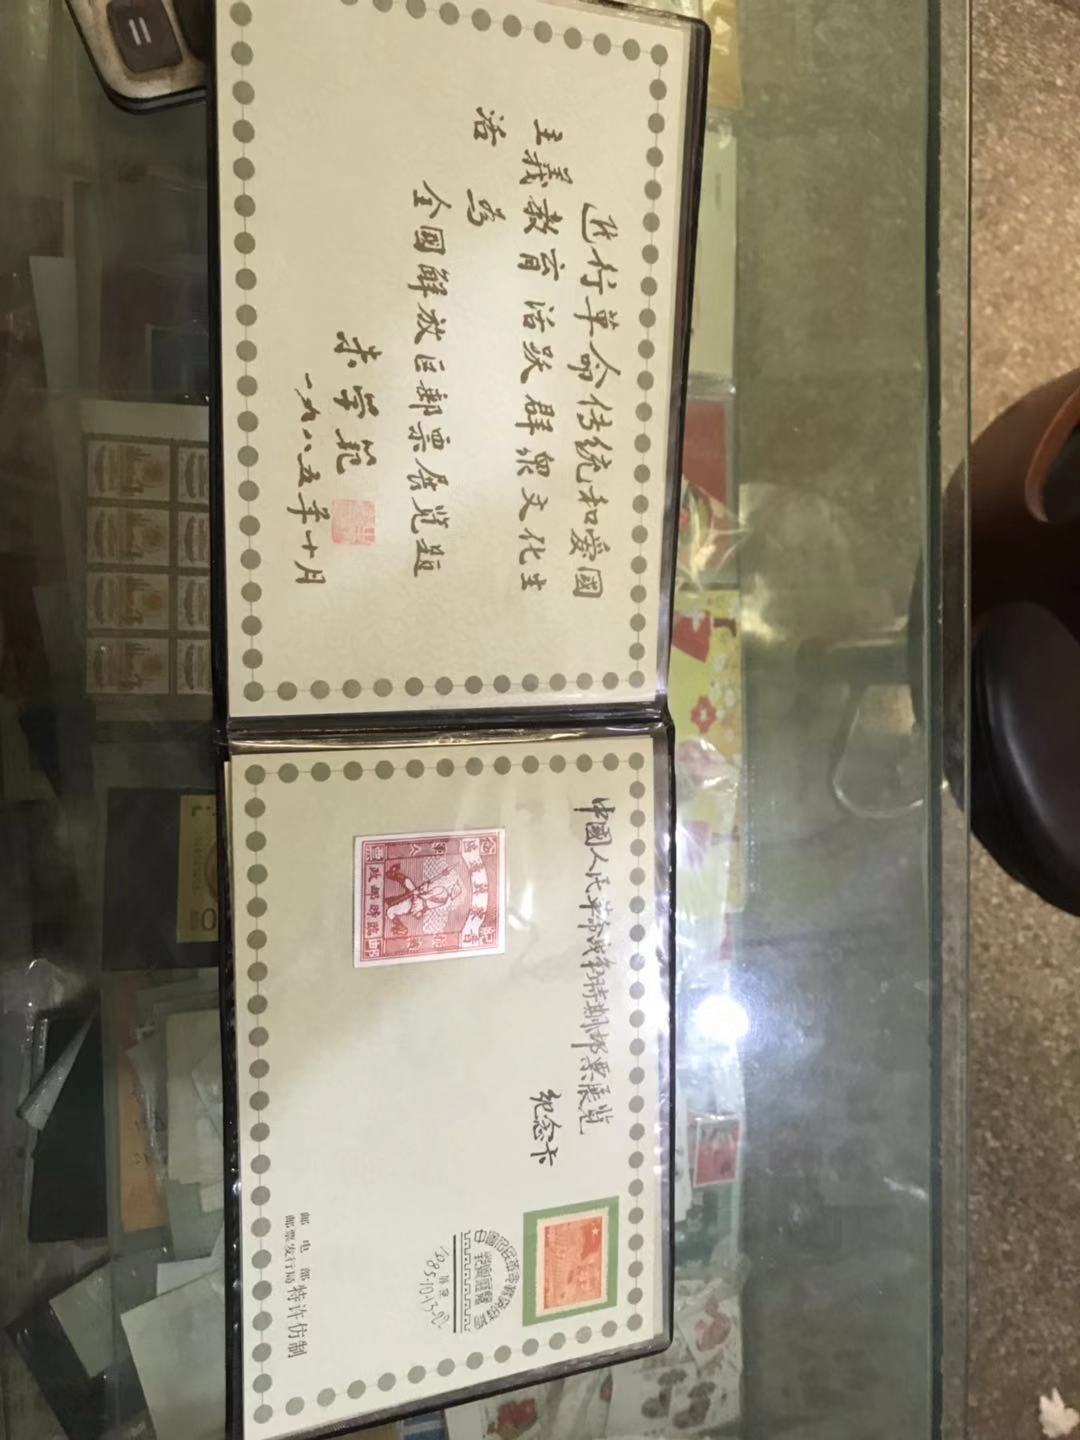 进行革命传统和爱國
主義教育活跃群眾文化生
活 為
全國解放区邮票展览题
朱学範
一九八五年十月
中國人民革命战争時期邮票展览
纪念卡
邮电部
邮票发行局特许仿制